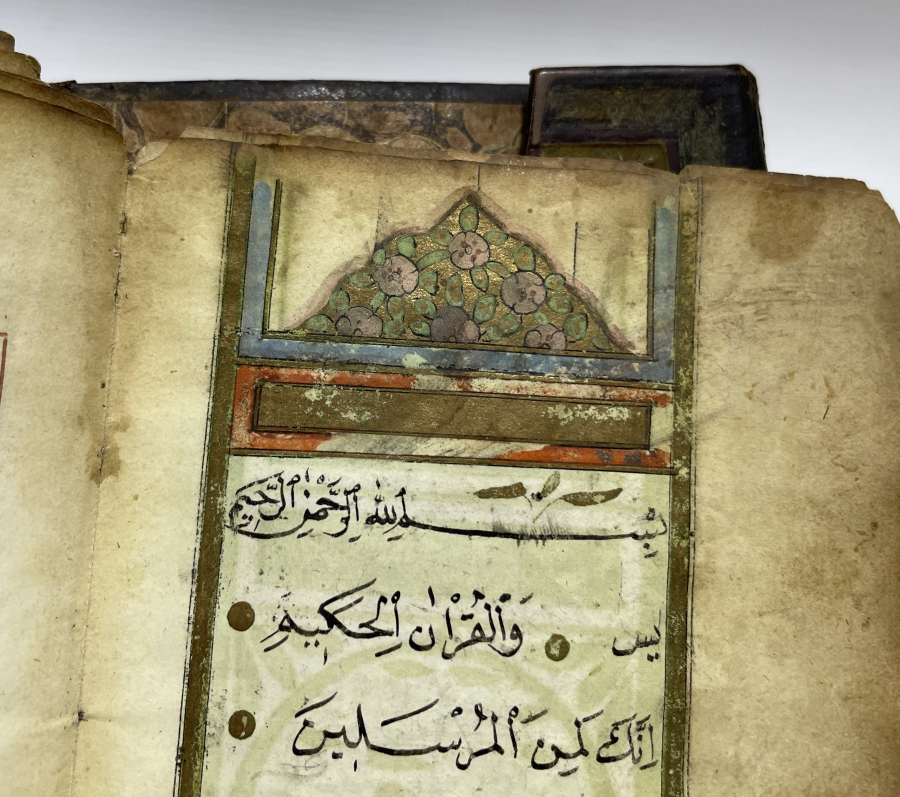 بِسْمِ اللهِ الرَّحْمٰنِ الرَّحِيمِ
يس وَالْقُرْاٰنِ الْحَكِيمِ
اِنَّكَ لَمِنَ الْمُرْسَلِينَ